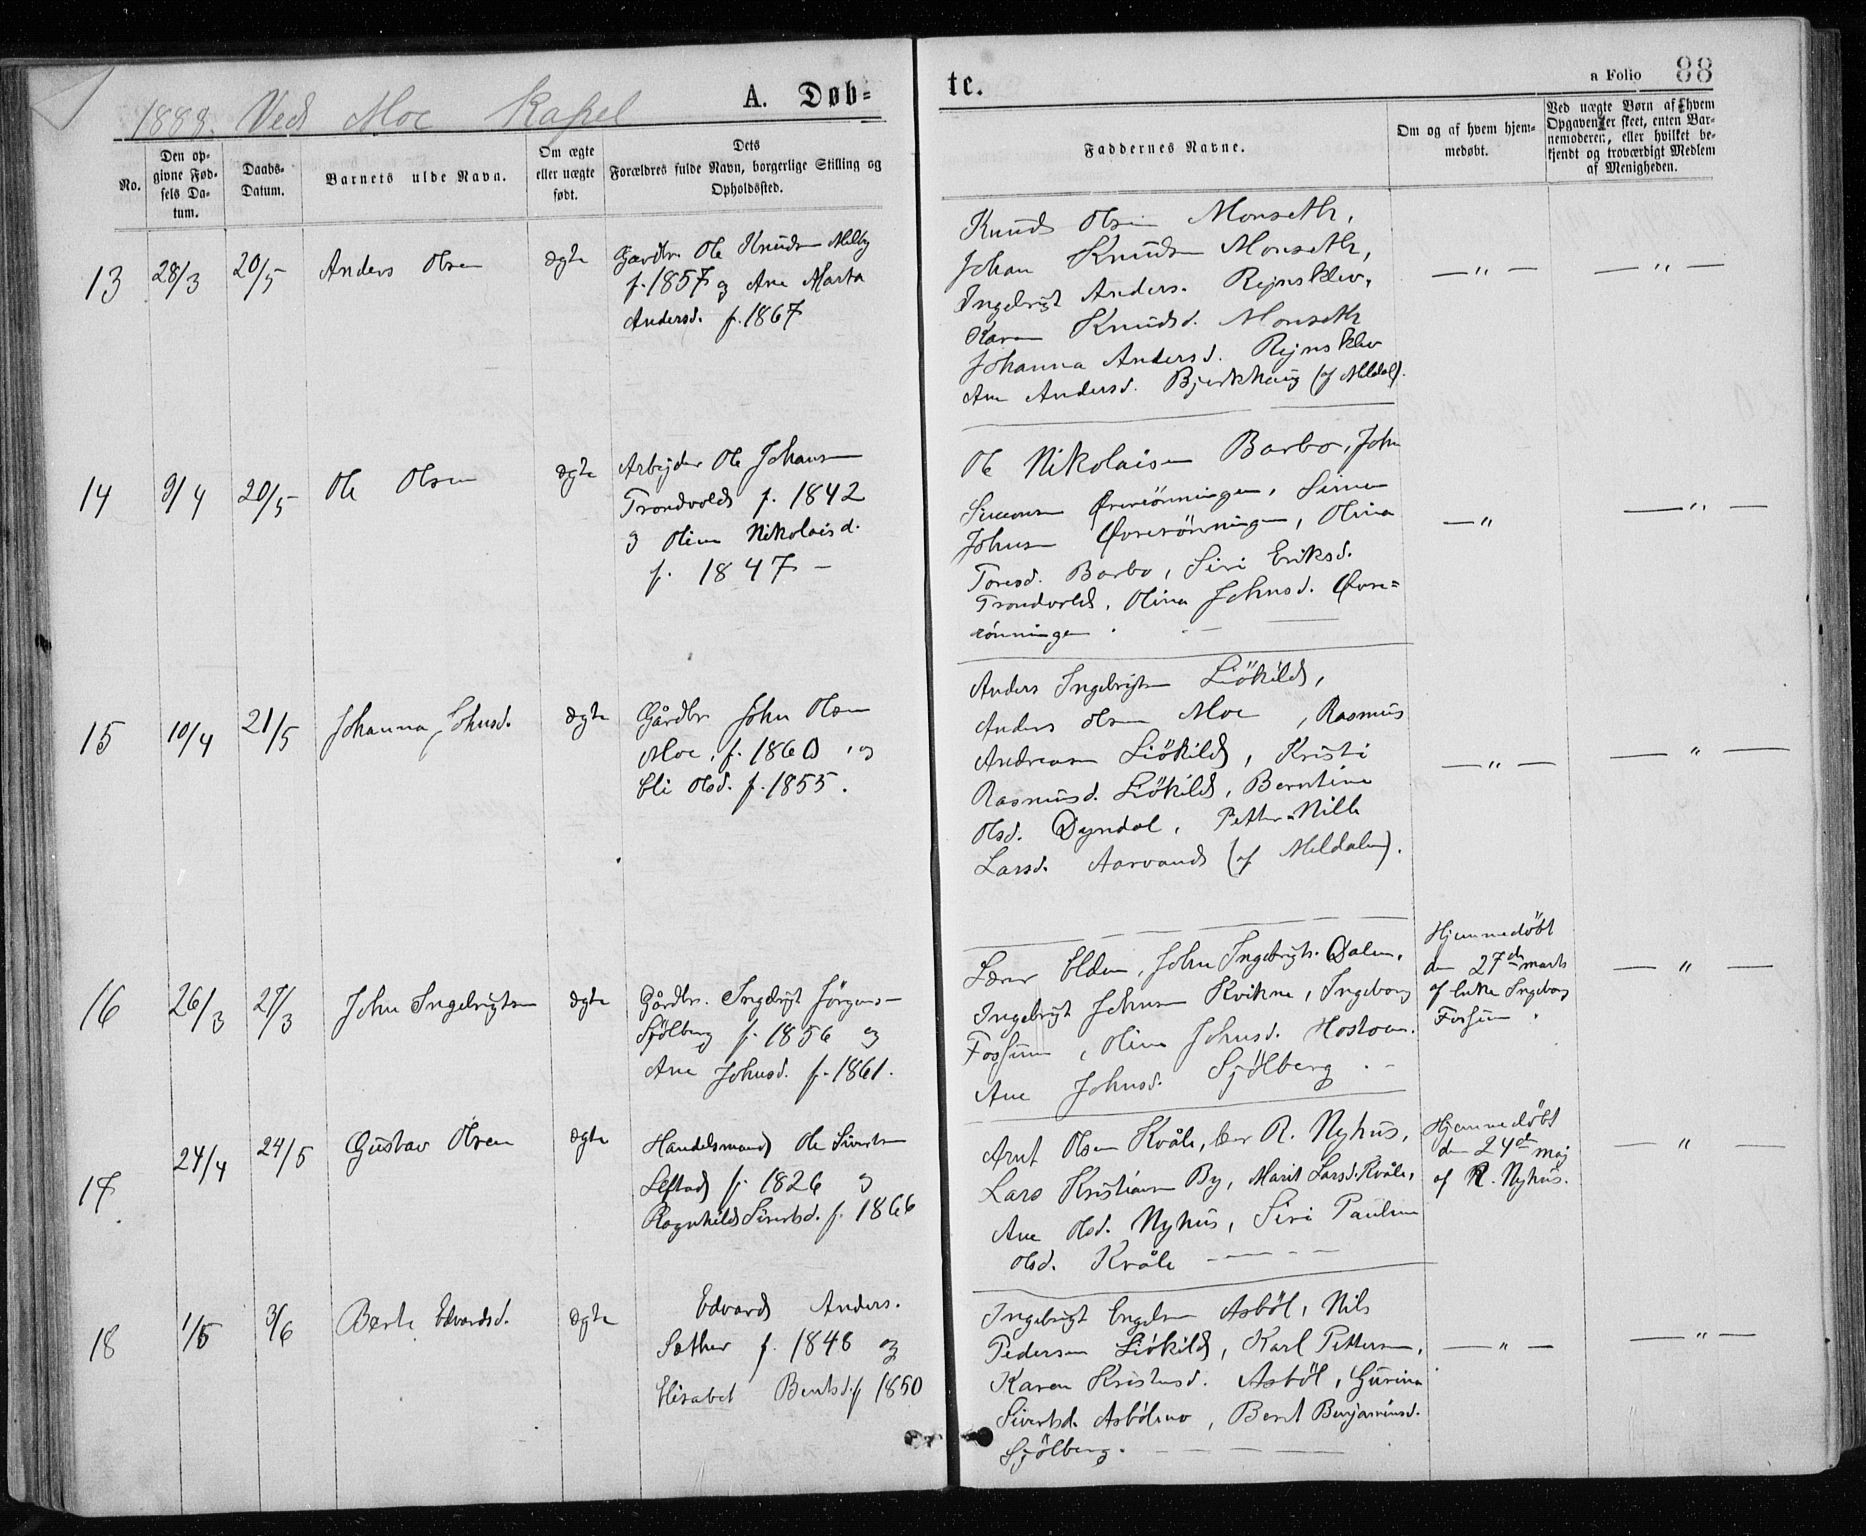 1888. Ved Moe Kapel
A. Døb-
te.
a Folio 88
No.
Den op-
givne Fød-
sels Da-
tum.
Daabs-
Datum.
Barnets ulde Navn.
Om ægte
eller uægte
født.
Dets
Forældres fulde Navn, borgerlige Stilling og
Opholdssted.
Faddernes Navne.
Om og af hvem hjem-
medøbt.
Ved uægte Børn af hvem
Opgaven er skeet, enten Bar-
nemoderen, eller hvilket be-
kjendt og troværdigt Medlem
af Menigheden.
13 28/3 20/5 Anders Olsen ægte
Gårdbr. Ole Knudsen Melby
f. 1857 og Ane Marta
Andersd. f. 1867
Knud Olsen Monseth,
Johan Knudsen Monseth,
Ingebrigt Anders. Rejnsklev,
Karen Knudsd. Monseth
Johanna Andersd. Rejnsklev
Ane Andersd. Bjerkhaug (af Meldal).
— " — — " —
14 9/4 20/5 Ole Olsen ægte
Arbejder Ole Johansen
Trondvold f. 1842
og Oline Nikolaisd.
f. 1847 —
Ole Nikolaisen Barbo, John
Simonsen Øvrerönningen, Simen
Johnsen Øvrerönningen, Olina
Toresd. Barbo, Siri Eriksd.
Trondvold, Olina Johnsd. Øvre=
rönningen.
— " — " —
15 10/4 21/5 Johanna Johnsd. ægte
Gårdbr. John Olsen
Moe, f. 1860, og
Eli Olsd. f. 1855.
Anders Ingebrigtsen Liökild,
Anders Olsen Moe, Rasmus
Andreasen Liökild, Kristi
Rasmusd. Liökild, Berntine
Olsd. Dyndal, Petter-Nille
Larsd. Aarvand (af Meldalen).
— " — — " —
16 26/3 27/3 John Ingebrigtsen ægte
Gårdbr. Ingebrigt Jörgens-
Sjölberg f. 1856 og
Ane Johnsd. f. 1861.
Lærer Elden, John Ingebrigts. Dalen,
Ingebrigt Johnsen Kvikne, Ingeborg
Fossum, Oline Johnsd. Hostoen.
Ane Johnsd. Sjölberg. —
Hjemmedöbt
den 27de marts
af Enke Ingeborg
Fossum.
— " —
17 24/4 24/5 Gustav Olsen ægte
Handelsmand Ole Sivertsen
Leftad f. 1826 og
Ragnhild Sivertsd. f. 1866
Arnt Olsen Kvåle, Lær R. Nyhus,
Lars Kristiansen By, Marit Larsd. Kvåle,
Ane Olsd. Nyhus, Siri Pauline
Olsd. Kvåle —
Hjemmedöbt
den 24de maj
af R. Nyhus.
— " —
18 1/5 3/6 Berte Edvardsd. ægte
Edvard Anders.
Sæther f. 1848 og
Elisabet Bentsd. f. 1850
Ingebrigt Engelsen Asböl, Nils
Pedersen Liökild, Karl Pettersen,
Karen Kristensd. Asböl, Gurina
Sivertsd. Asböl, Berit Benjaminsd.
Sjölberg. —
— " — — " —